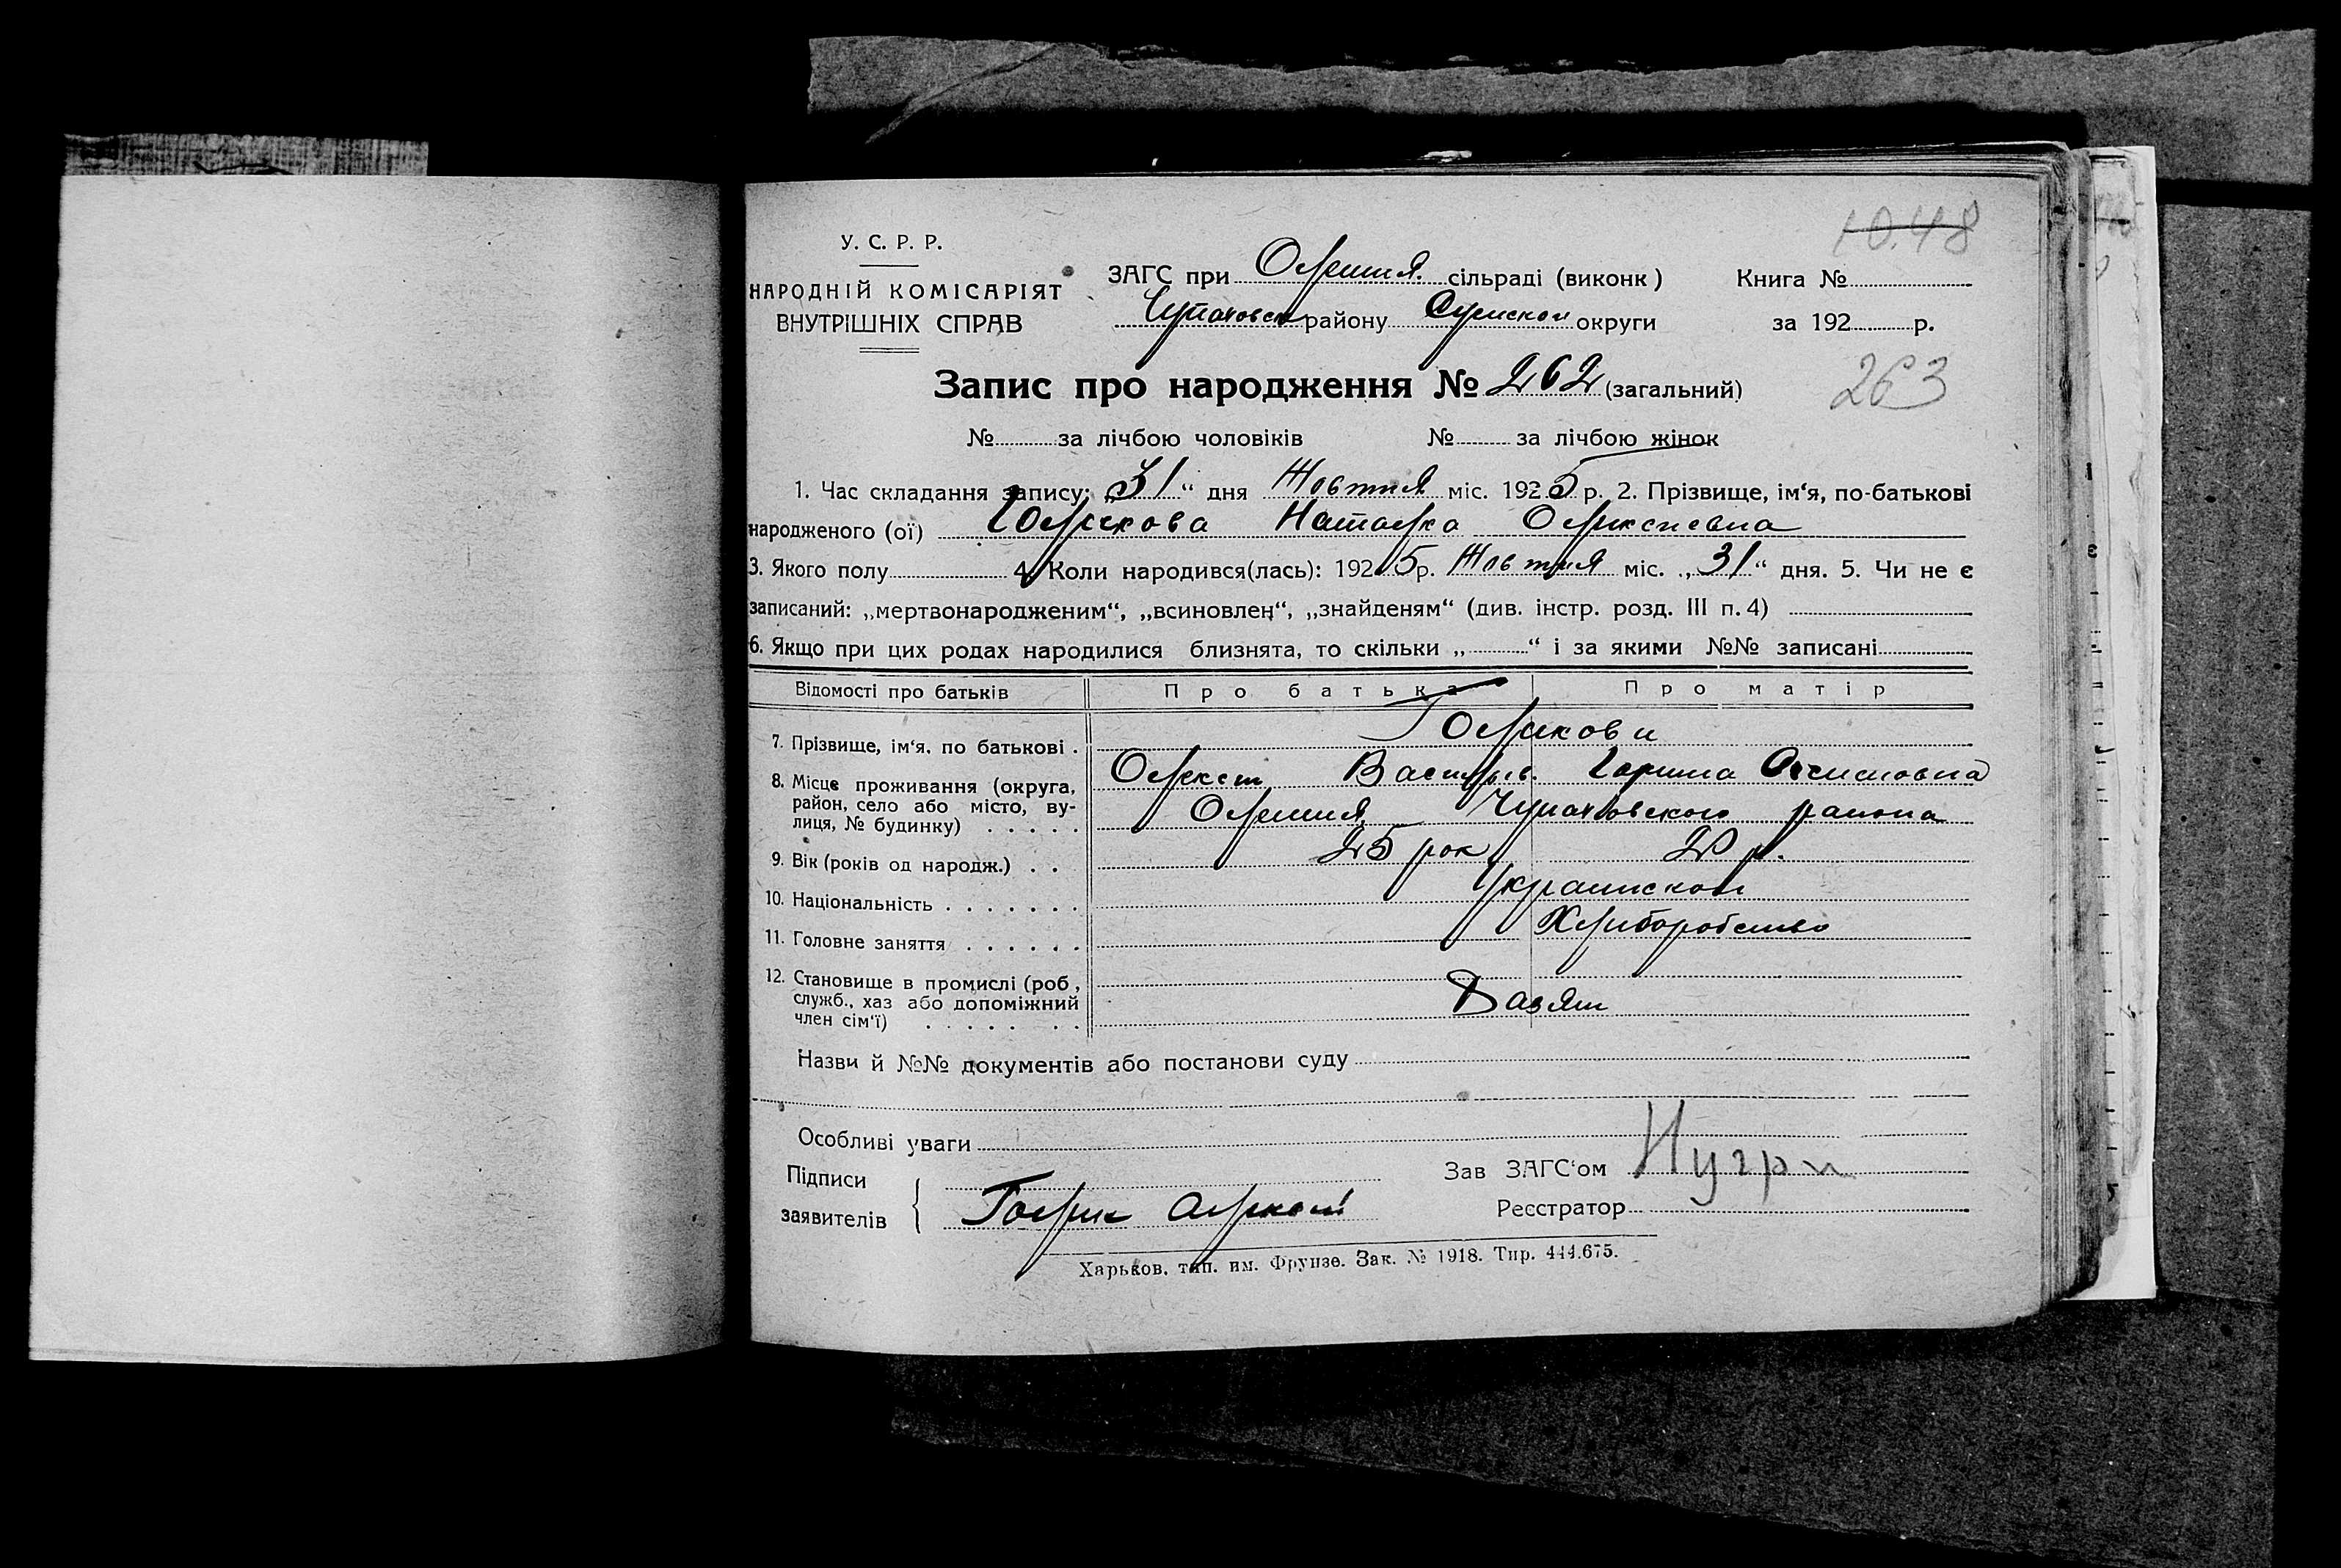 10.48
У. С. Р. Р.
НАРОДНІЙ КОМІСАРІЯТ
ВНУТРІШНІХ СПРАВ
ЗАГС при Олешня сільраді (виконк) Книга №
Чупаховск району Сумской округи за 192 р.
Запис про народження № 262 (загальний) 263
№ за лічбою чоловіків № за лічбою жінок
1. Час складання запису: „31“ дня Жовтня міс. 1925 р. 2. Прізвище, ім‘я, по-батькові
народженого (ої) Наталка Олексіевна
3. Якого полу 4. Коли народився(лась): 1925р. Жовтня міс. „31“ дня. 5. Чи не є
записаний: „мертвонародженим“, „всиновлен“, „знайденям“ (див. інстр. розд. III п. 4)
6. Якщо при цих родах народилися близнята, то скільки „ “ і за якими №№ записані
Відомості про батьків Про батька Про матір
7. Прізвище, ім‘я, по батькові
Олекст Василь.
8. Місце проживання (округа, район, село або місто, вулиця, № будинку) Олешня Чупаховского района
9. Вік (років од народж.) 25 рок 20 р.
10. Національність Украинской
11. Головне заняття Хліборобство
12. Становище в промислі (роб, служб., хаз або допоміжний член сім‘ї)
Назви й №№ документів або постанови суду
Особливі уваги
Підписи Зав ЗАГС‘ом
заявителів Реєстратор
Харьков, тип. им. Фрунзе. Зак. № 1918. Тир. 444.675.